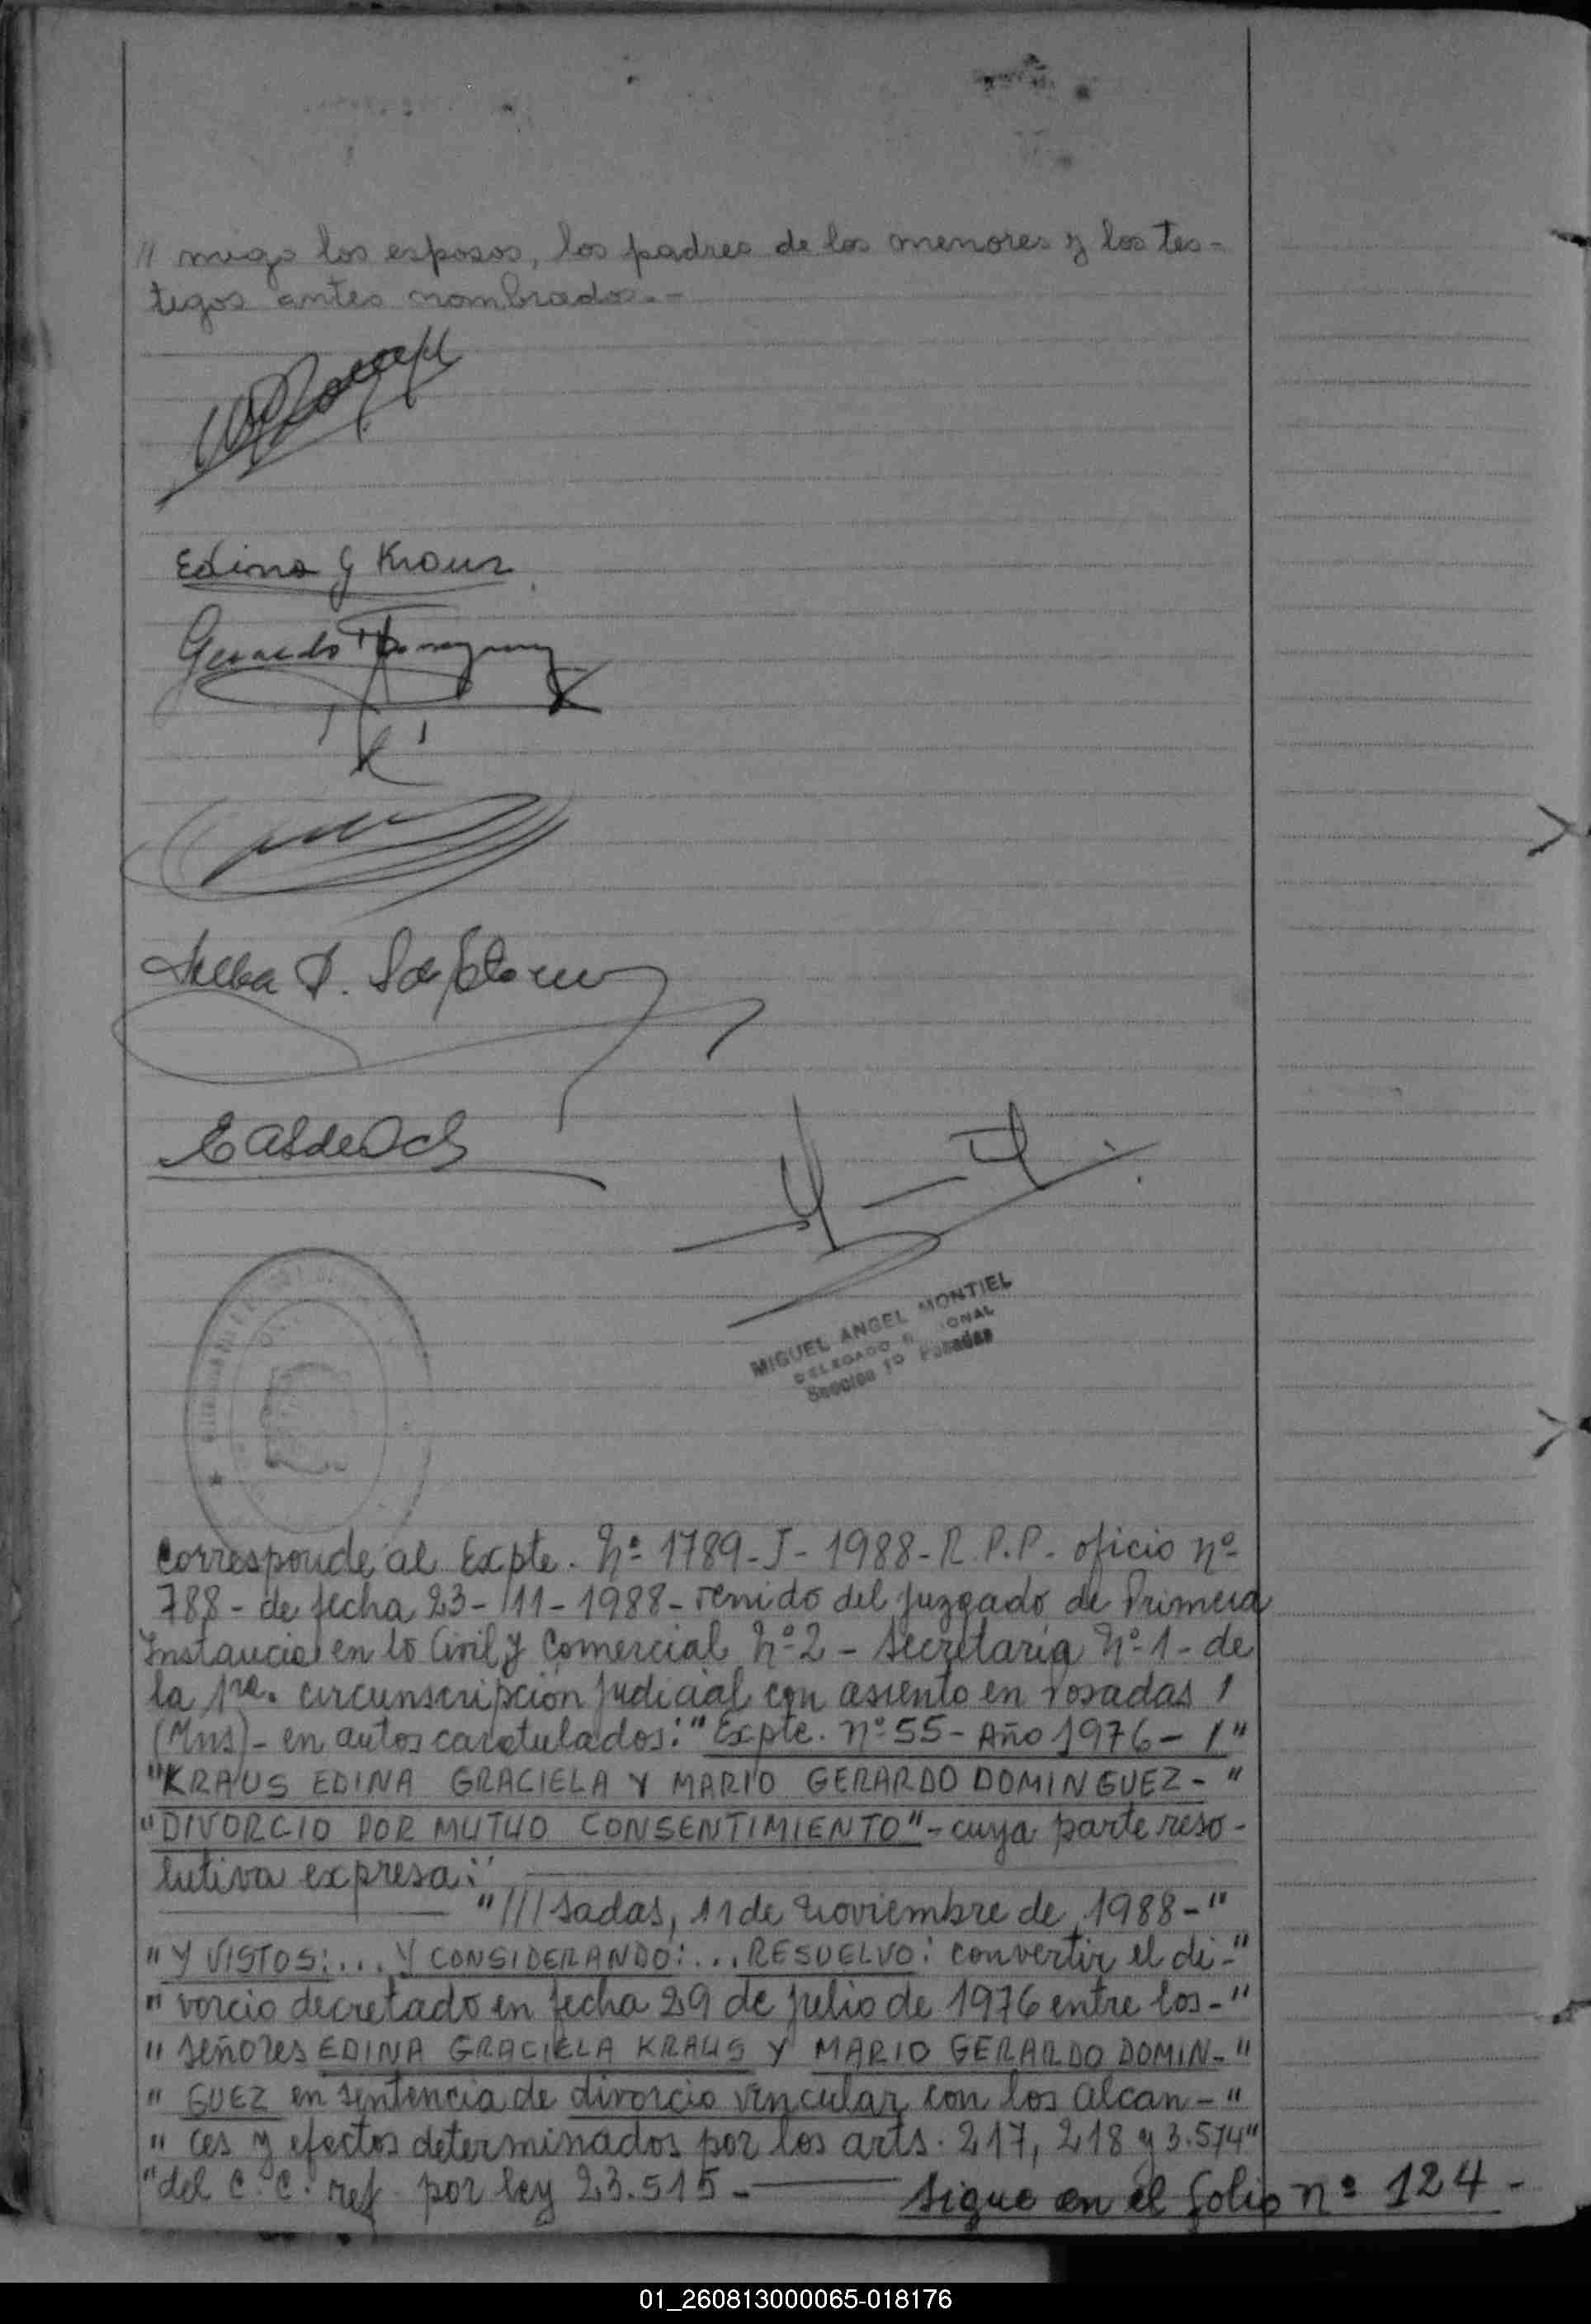 // migo los esposos, los padres de los menores y los tes-
tigos antes nombrados.-
Edina G Kraus
Gerardo Dominguez
MIGUEL ANGEL MONTIEL
DELEGADO
Sección 1º Posadas
Corresponde al Expte. Nº 1789-J-1988-R.P.P. oficio nº
788- de fecha 23-11-1988- venido del Juzgado de Primera
Instancia en lo Civil y Comercial Nº 2 - Secretaría Nº 1 - de
la 1ra. circunscripción judicial con asiento en Posadas /
(Mns)- en autos caratulados: "Expte. nº 55 - Año 1976 - /"
"KRAUS EDINA GRACIELA Y MARIO GERARDO DOMINGUEZ- "
"DIVORCIO POR MUTUO CONSENTIMIENTO"- cuya parte reso-
lutiva expresa:"
"///sadas, 11 de noviembre de 1988-"
"Y VISTOS:... Y CONSIDERANDO:... RESUELVO: convertir el di-"
" vorcio decretado en fecha 29 de julio de 1976 entre los-"
" señores EDINA GRACIELA KRAUS Y MARIO GERARDO DOMIN-"
" GUEZ en sentencia de divorcio vincular con los alcan-"
" ces y efectos determinados por los arts. 217, 218 y 3.574"
"del C.C. ref. por ley 23.515- Sigue en el folio nº 124-
01_260813000065-018176